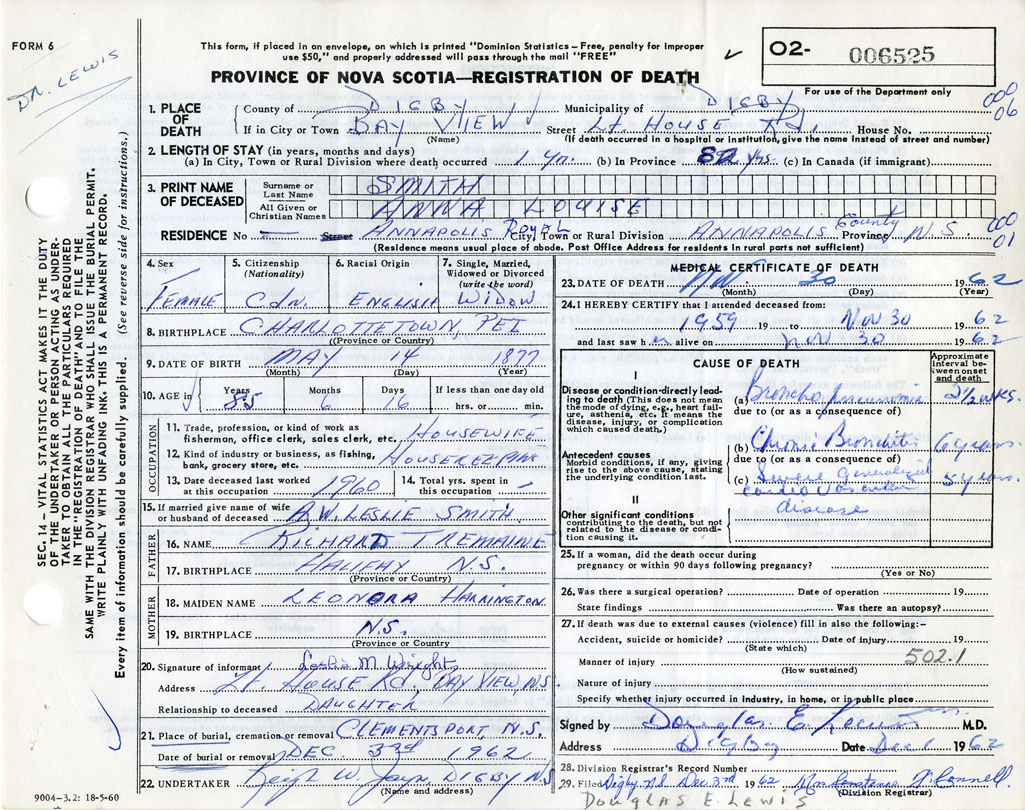 FORM 6
DR. LEWIS
This form, if placed in an envelope, on which is printed "Dominion Statistics – Free, penalty for improper
use $50," and properly addressed will pass through the mail "FREE"
PROVINCE OF NOVA SCOTIA—REGISTRATION OF DEATH
O2- 006525
For use of the Department only
000
06
1. PLACE OF DEATH
County of DIGBY Municipality of DIGBY
If in City or Town BAY VIEW Street Lt. HOUSE Rd. House No.
(Name) (If death occurred in a hospital or institution, give the name instead of street and number)
2. LENGTH OF STAY (in years, months and days)
(a) In City, Town or Rural Division where death occurred 1 yr. (b) In Province 82 yrs. (c) In Canada (if immigrant)
3. PRINT NAME OF DECEASED
Surname or Last Name SMITH
All Given or Christian Names ANNA LOUISE
RESIDENCE No — Street ANNAPOLIS ROYAL City, Town or Rural Division ANNAPOLIS County Province N.S.
000
01
(Residence means usual place of abode. Post Office Address for residents in rural parts not sufficient)
4. Sex FEMALE
5. Citizenship (Nationality) Cdn.
6. Racial Origin ENGLISH
7. Single, Married, Widowed or Divorced (write the word) WIDOW
8. BIRTHPLACE CHARLOTTETOWN, PEI
(Province or Country)
9. DATE OF BIRTH MAY 14 1877
(Month) (Day) (Year)
10. AGE in Years 85 Months 6 Days 16 If less than one day old hrs. or min.
OCCUPATION
11. Trade, profession, or kind of work as fisherman, office clerk, sales clerk, etc. HOUSEWIFE
12. Kind of industry or business, as fishing, bank, grocery store, etc. HOUSEKEEPING
13. Date deceased last worked at this occupation 1960
14. Total yrs. spent in this occupation —
15. If married give name of wife or husband of deceased R.W. LESLIE SMITH
FATHER
16. NAME RICHARD TREMAINE
17. BIRTHPLACE HALIFAX N.S.
(Province or Country)
MOTHER
18. MAIDEN NAME LEONORA HARRINGTON
19. BIRTHPLACE N.S.
(Province or Country)
20. Signature of informant M. Wright
Address Lt. HOUSE Rd, BAY VIEW, N.S.
Relationship to deceased DAUGHTER
21. Place of burial, cremation or removal CLEMENTSPORT N.S.
Date of burial or removal DEC. 3rd 1962
22. UNDERTAKER W. DIGBY N.S.
(Name and address)
9004-3.2: 18-5-60
MEDICAL CERTIFICATE OF DEATH
23. DATE OF DEATH Nov. 30 1962
(Month) (Day) (Year)
24. I HEREBY CERTIFY that I attended deceased from:
1959 19 to Nov 30 1962
and last saw her alive on Nov 30 1962
CAUSE OF DEATH
Approximate interval between onset and death
I
Disease or condition directly leading to death (This does not mean the mode of dying, e.g., heart failure, asthenia, etc. It means the disease, injury, or complication which caused death.)
(a) Broncho pneumonia 2 1/2 wks.
due to (or as a consequence of)
Antecedent causes
Morbid conditions, if any, giving rise to the above cause, stating the underlying condition last.
(b) Chronic Bronchitis 6 years
due to (or as a consequence of)
(c) Severe Generalized cardio vascular disease 5 years
II
Other significant conditions
contributing to the death, but not related to the disease or condition causing it.
25. If a woman, did the death occur during pregnancy or within 90 days following pregnancy?
(Yes or No)
26. Was there a surgical operation? Date of operation 19
State findings Was there an autopsy?
27. If death was due to external causes (violence) fill in also the following:-
Accident, suicide or homicide? Date of injury 19
(State which)
Manner of injury 502.1
(How sustained)
Nature of injury
Specify whether injury occurred in Industry, in home, or in public place
Signed by Douglas E. Lewis M.D.
Address Digby Date Dec 1 1962
28. Division Registrar's Record Number
29. Filed Digby N.S. Dec 3rd 1962 Mrs Constance
(Division Registrar)
Douglas E. Lewis
SEC. 14 – VITAL STATISTICS ACT MAKES IT THE DUTY
OF THE UNDERTAKER OR PERSON ACTING AS UNDER-
TAKER TO OBTAIN ALL THE PARTICULARS REQUIRED
IN THE "REGISTRATION OF DEATH" AND TO FILE THE
SAME WITH THE DIVISION REGISTRAR WHO SHALL ISSUE THE BURIAL PERMIT.
WRITE PLAINLY WITH UNFADING INK. THIS IS A PERMANENT RECORD.
Every item of information should be carefully supplied. (See reverse side for instructions.)